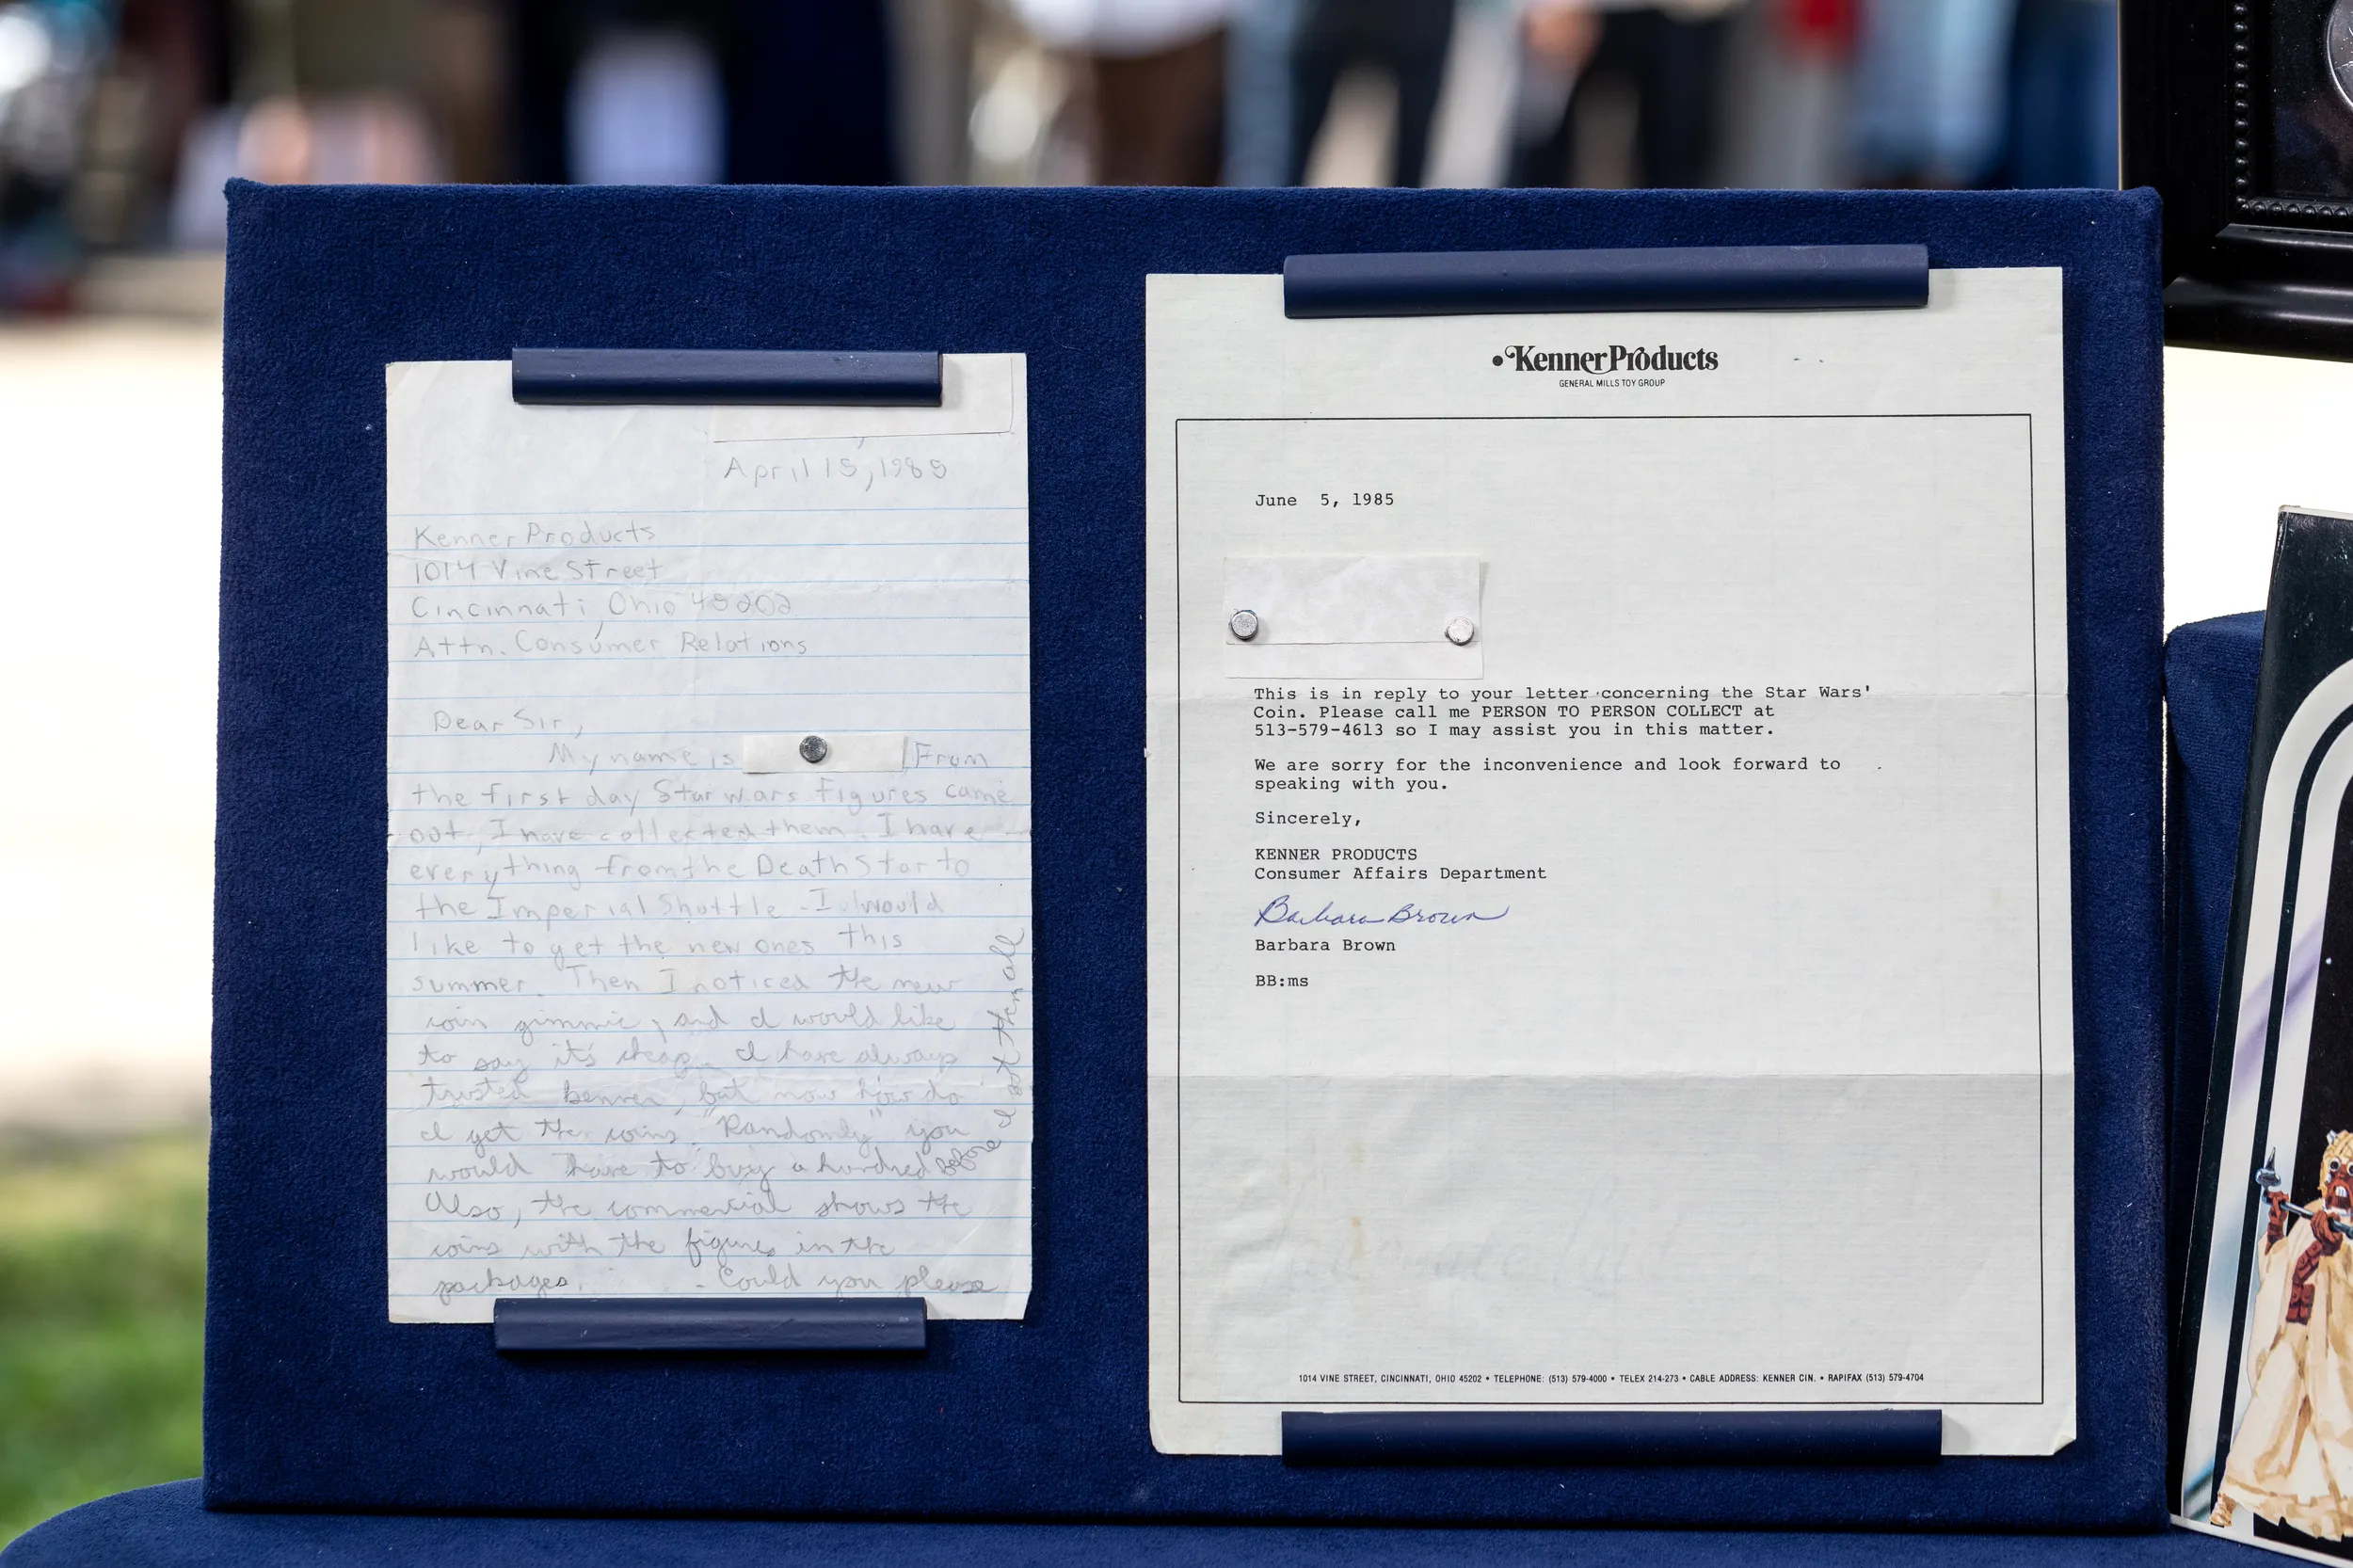 April 15, 1985
Kenner Products
1014 Vine Street
Cincinnati, Ohio 45202
Attn. Consumer Relations
Dear Sir,
My name is
From
the first day Star wars figures came
out, I have collected them. I have
everything from the Death Star to
the Imperial Shuttle. I would
like to get the new ones this
summer. Then I noticed the new
coin gimmic, and I would like
to say it's cheap. I have always
trusted kenner, but now how do
I get the coins. "Randomly" you
would have to buy a hundred before I got them all
Also, the commercial shows the
coins with the figures in the
packages. Could you please
•Kenner Products
GENERAL MILLS TOY GROUP
June 5, 1985
This is in reply to your letter concerning the Star Wars'
Coin. Please call me PERSON TO PERSON COLLECT at
513-579-4613 so I may assist you in this matter.
We are sorry for the inconvenience and look forward to
speaking with you.
Sincerely,
KENNER PRODUCTS
Consumer Affairs Department
Barbara Brown
Barbara Brown
BB:ms
1014 VINE STREET, CINCINNATI, OHIO 45202 • TELEPHONE: (513) 579-4000 • TELEX 214-273 • CABLE ADDRESS: KENNER CIN. • RAPIFAX (513) 579-4704